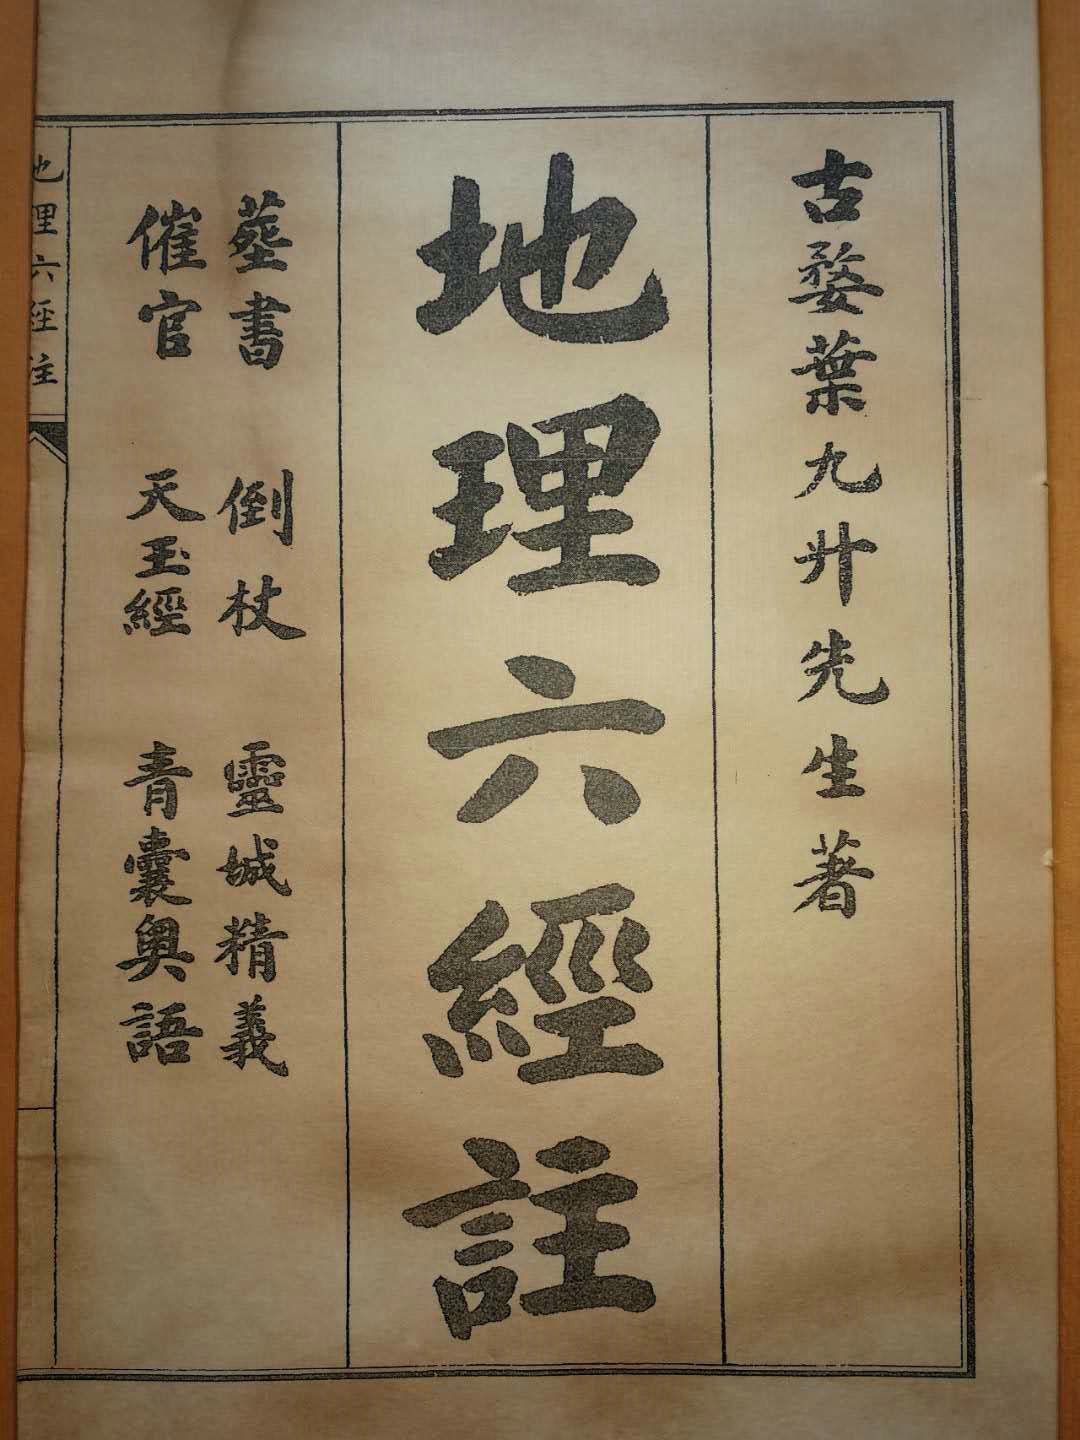 古婺葉九升先生著
地理六經註
塟書 倒杖 靈城精義
催官 天玉經 青囊奧語
地理六經註